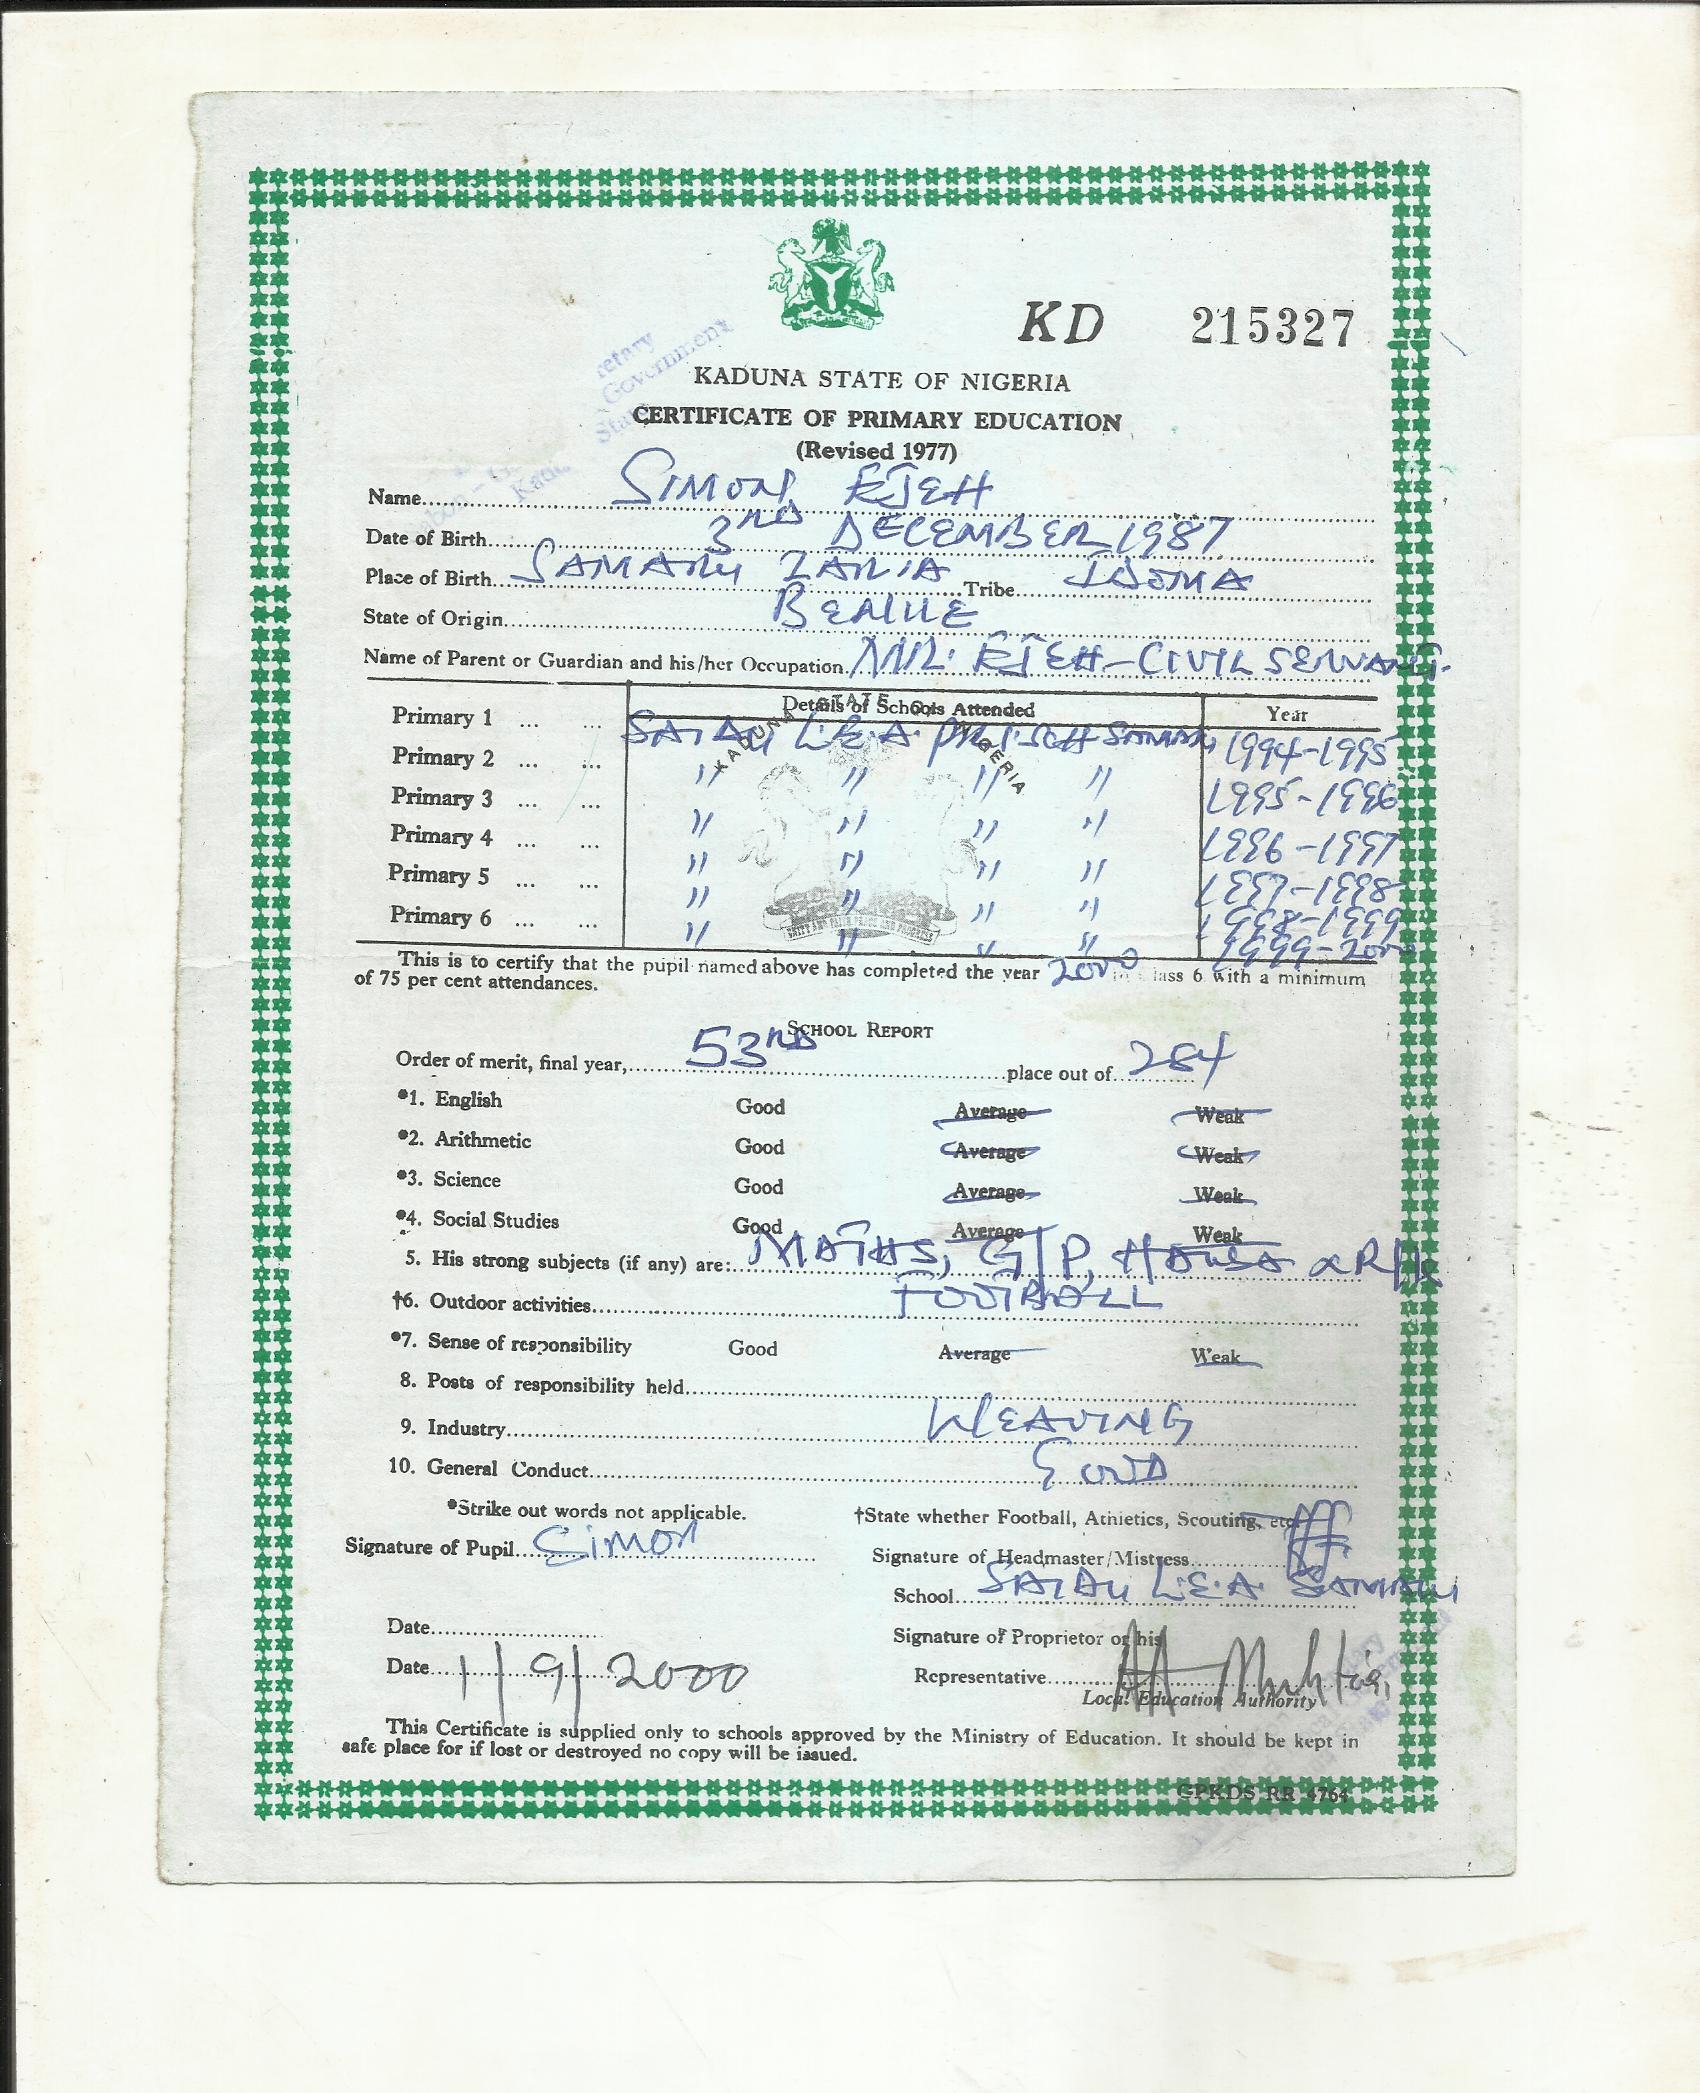 KD 215327
KADUNA STATE OF NIGERIA
CERTIFICATE OF PRIMARY EDUCATION
(Revised 1977)
retary
Government
Name SIMON EJEH
Date of Birth 3RD DECEMBER 1987
Place of Birth SAMARU ZARIA Tribe IDOMA
State of Origin BENUE
Name of Parent or Guardian and his/her Occupation MR. EJEH - CIVIL SERVANT.
Details of Schools Attended Year
KADUNA STATE OF NIGERIA
Primary 1 ... ... L.E.A. PRI. SCH SAMARU 1994-1995
Primary 2 ... ... " " " " 1995-1996
Primary 3 ... ... " " " " 1996-1997
Primary 4 ... ... " " " " 1997-1998
Primary 5 ... ... " " " " 1998-1999
Primary 6 ... ... " " " " 1999-2000
This is to certify that the pupil named above has completed the year 2000 in Class 6 with a minimum
of 75 per cent attendances.
SCHOOL REPORT
Order of merit, final year, 53RD place out of 284
*1. English Good Average Weak
*2. Arithmetic Good Average Weak
*3. Science Good Average Weak
*4. Social Studies Good Average Weak
5. His strong subjects (if any) are: MATHS, G/P, HAUSA &
†6. Outdoor activities FOOTBALL
*7. Sense of responsibility Good Average Weak
8. Posts of responsibility held
9. Industry WEAVING
10. General Conduct GOOD
*Strike out words not applicable. †State whether Football, Athletics, Scouting, etc.
Signature of Pupil Simon
Signature of Headmaster/Mistress
School L.E.A. SAMARU
Date
Signature of Proprietor or his
Date 1/9/2000
Representative
Local Education Authority
This Certificate is supplied only to schools approved by the Ministry of Education. It should be kept in
safe place for if lost or destroyed no copy will be issued.
GPKDS RR 4764